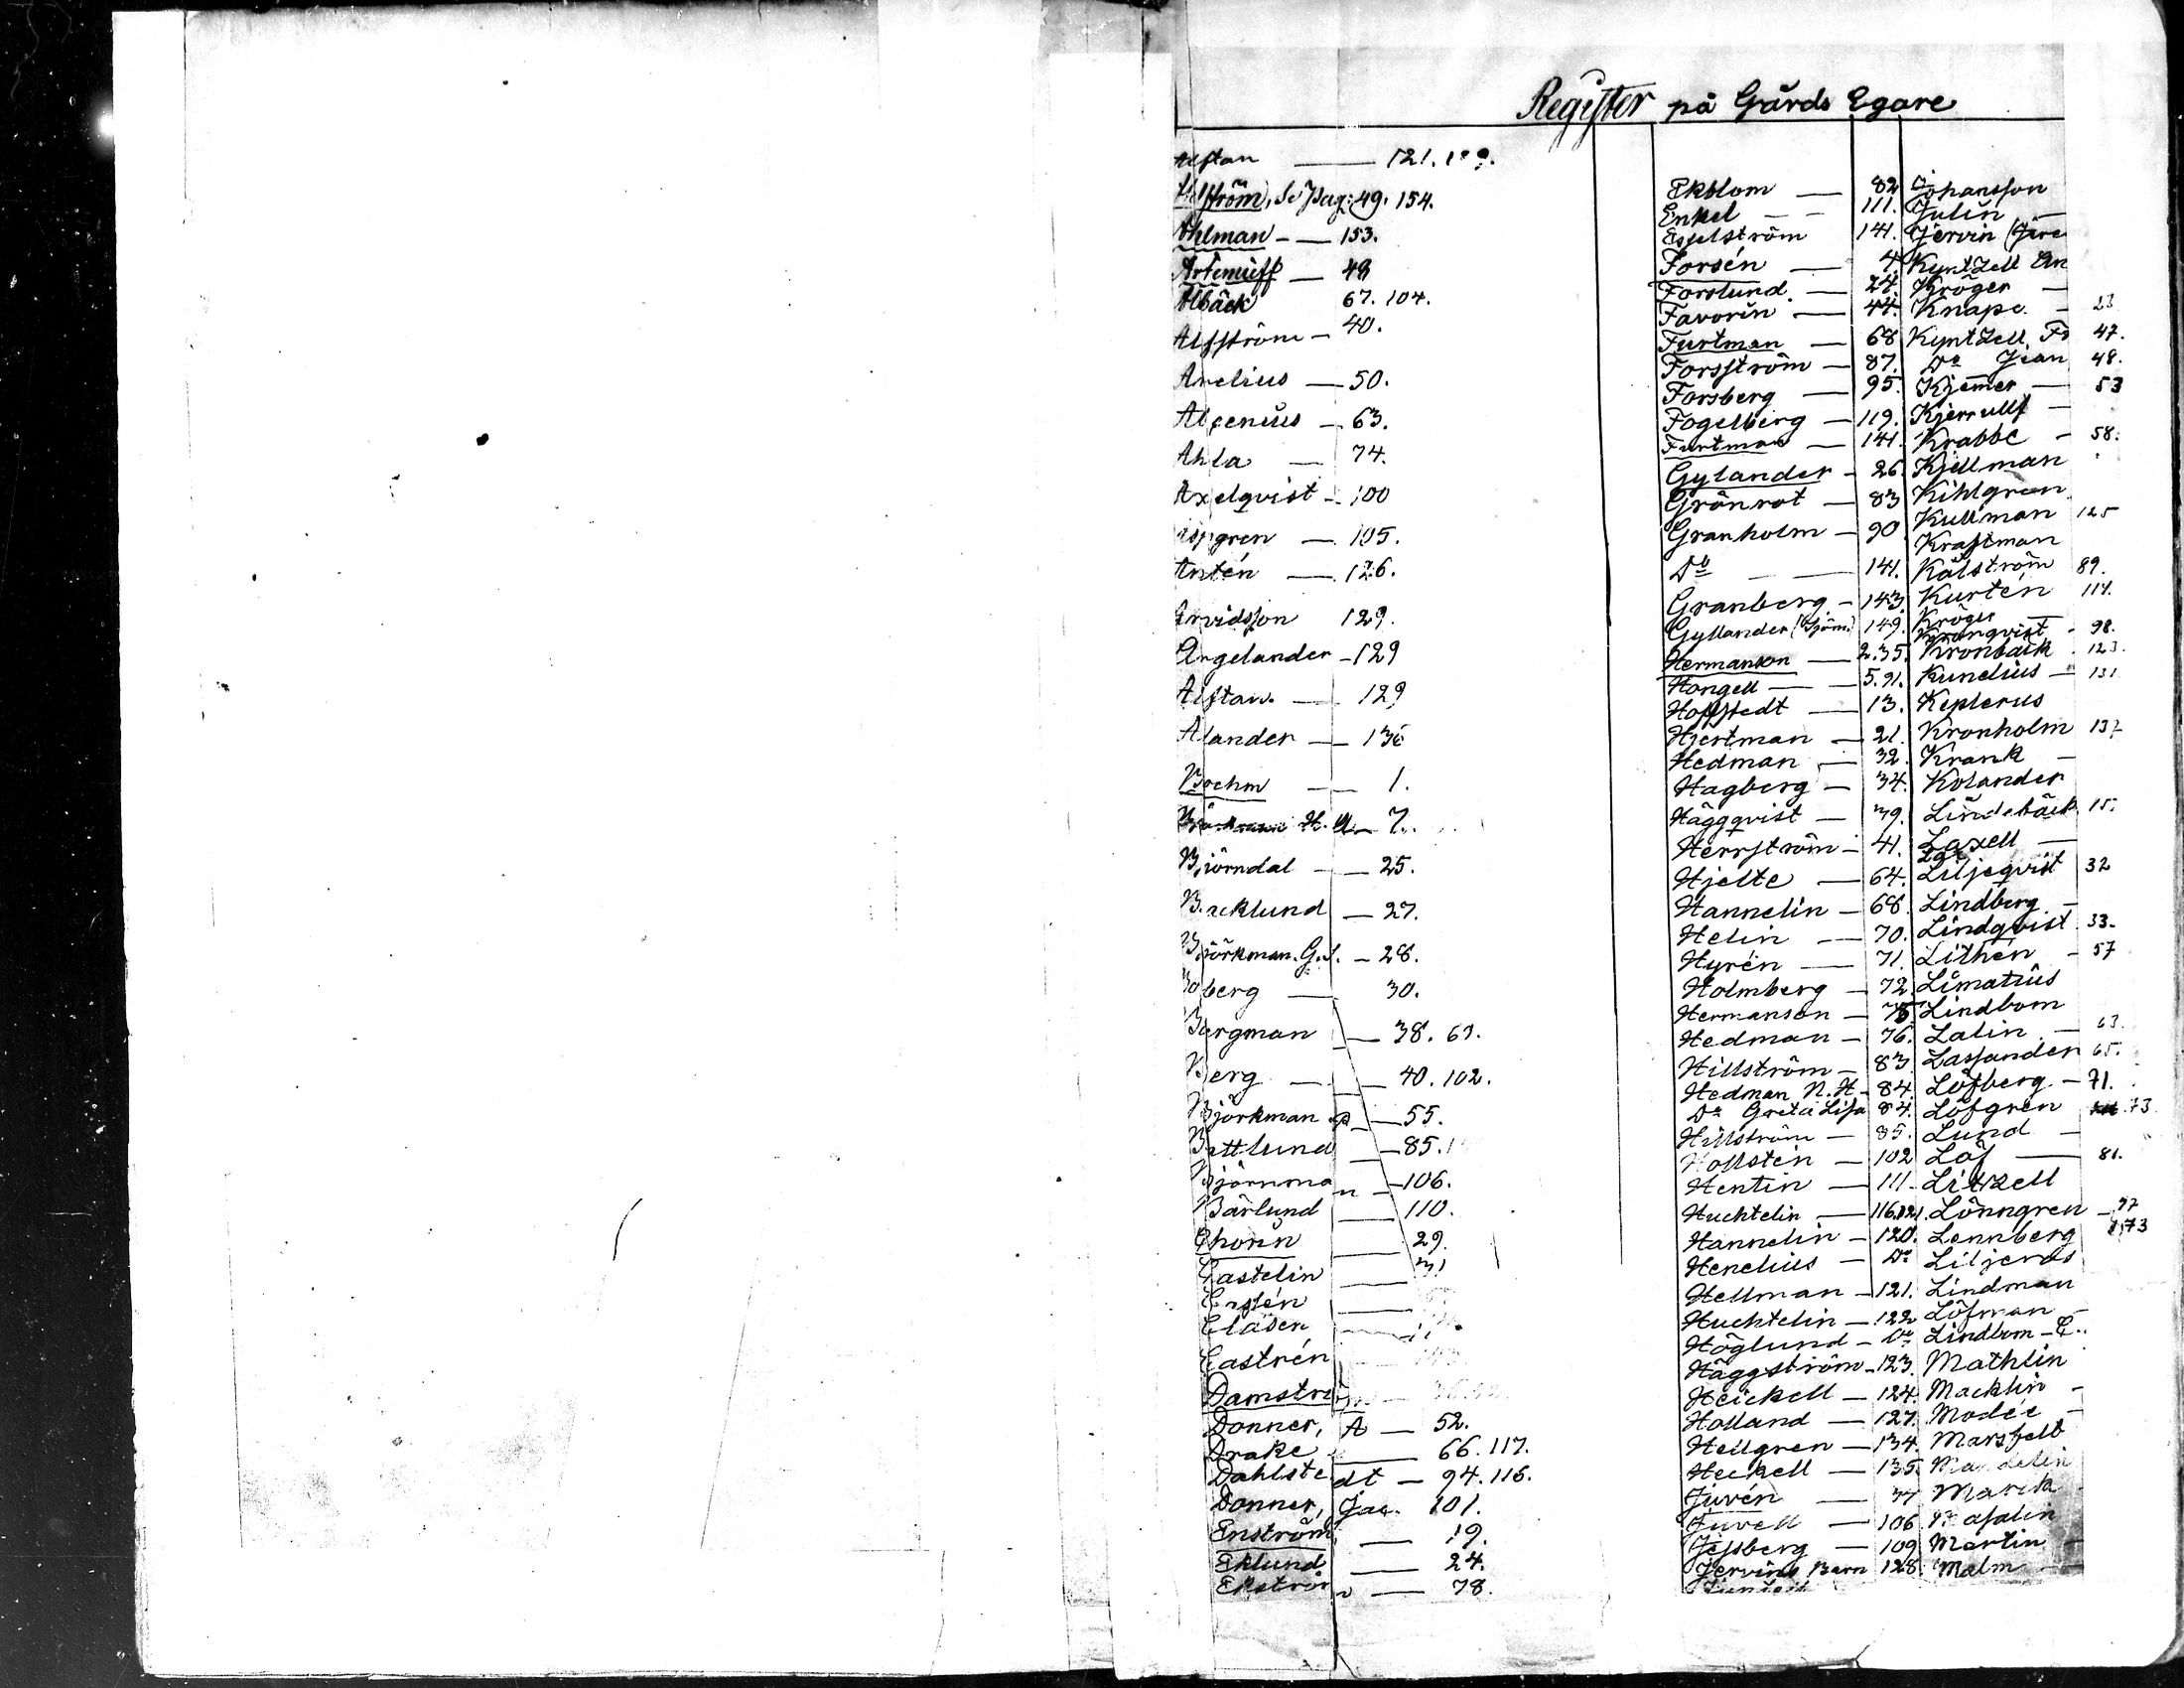 Register på Gårds Egare
Alftan — 121. 129.
Ahlman — 153.
Artemieff — 49
Albäck 67. 104.
Alfström — 40.
Arelius — 50.
Alcenius — 63.
Ahla — 74.
Axelqvist — 100
Aspgren — 105.
Antén — 126.
Arvidsson 129.
Argelander — 129
Alftan — 129
Alander — 136
Boehm — 1.
H. A — 7.
Björndal — 25.
Backlund — 27.
Björkman. G. — 28.
Boberg — 30.
Bergman — 38. 67.
Berg — 40. 102.
Björkman — 55.
Bettlund — 85.
Björnman — 106.
Bärlund — 110.
Chorin — 29.
Castelin — 31
Castén
Clasen
Castrén
Damström
Donner, A — 52.
Drake — 66. 117.
Dahlstedt — 94. 116.
Donner, Jac. 101.
Enström — 19.
Eklund — 24.
Ekström — 78.
Ekblom — 82
Enkel — 111.
Esselström 141.
Forsén — 4.
Forslund — 24.
Favorin — 44.
Furtman — 68
Forsström — 87.
Forsberg — 95
Fogelberg — 119.
Furtman — 141.
Gylander — 26.
Grönrot — 83
Granholm — 90
Do — 141.
Granberg — 143.
Gyllander (Sjöm.) 149.
Hermanson — 2. 35.
Hongell — 5. 91.
Hoffstedt — 13.
Hjertman — 21.
Hedman — 32.
Hagberg — 34.
Häggqvist — 39.
Herrström — 41.
Hjelte — 64.
Hannelin — 68.
Helin — 70.
Hyrén — 71.
Holmberg — 72.
Hermanson — 75
Hedman — 76.
Hillström — 83
Hedman N. H — 84.
Do Greta Lisa 84.
Hillström — 85.
Hollsten — 102
Hentin — 111.
Huchtelin — 116. 121.
Hannelin — 120.
Henelius — Do
Hellman — 121.
Huchtelin — 122
Höglund — Do
Häggström — 123.
Heickell — 124.
Holland — 127.
Hellgren — 134.
Heickell — 135.
Juvén — 37
Juvell — 106
Jessberg — 109
Jervins Barn 128.
Johansson
Julin —
Jervin
Kyntzell
Kröger —
Knape — 23
Kyntzell, 47.
Do Jean 48.
Kjemer — 53
Kjerrulf —
Krabbe — 58.
Kjellman
Kihlgren
Kullman 125
Kraftman
Kålström 89.
Kurtén 114.
Kröger —
Kronqvist — 98.
Kronbäck 123.
Kunelius — 131
Keplerus
Kronholm 137
Krank —
Kolander
Lindebäck 15.
Laxell —
Liljeqvist 32
Lindberg —
Lindqvist 33.
Lithén — 57
Limatius
Lindbom
Lalin — 63.
Lassander 65.
Löfberg — 71.
Löfgren 73.
Lund —
Löf — 81.
Litzell
Lönngren — 97
Lennberg 173
Liljeros
Lindman
Löfman —
Lindbom — C.
Mathlin
Macklin —
Modée —
Marsfelt
Mandelin
Masalin
Martin —
Malm —